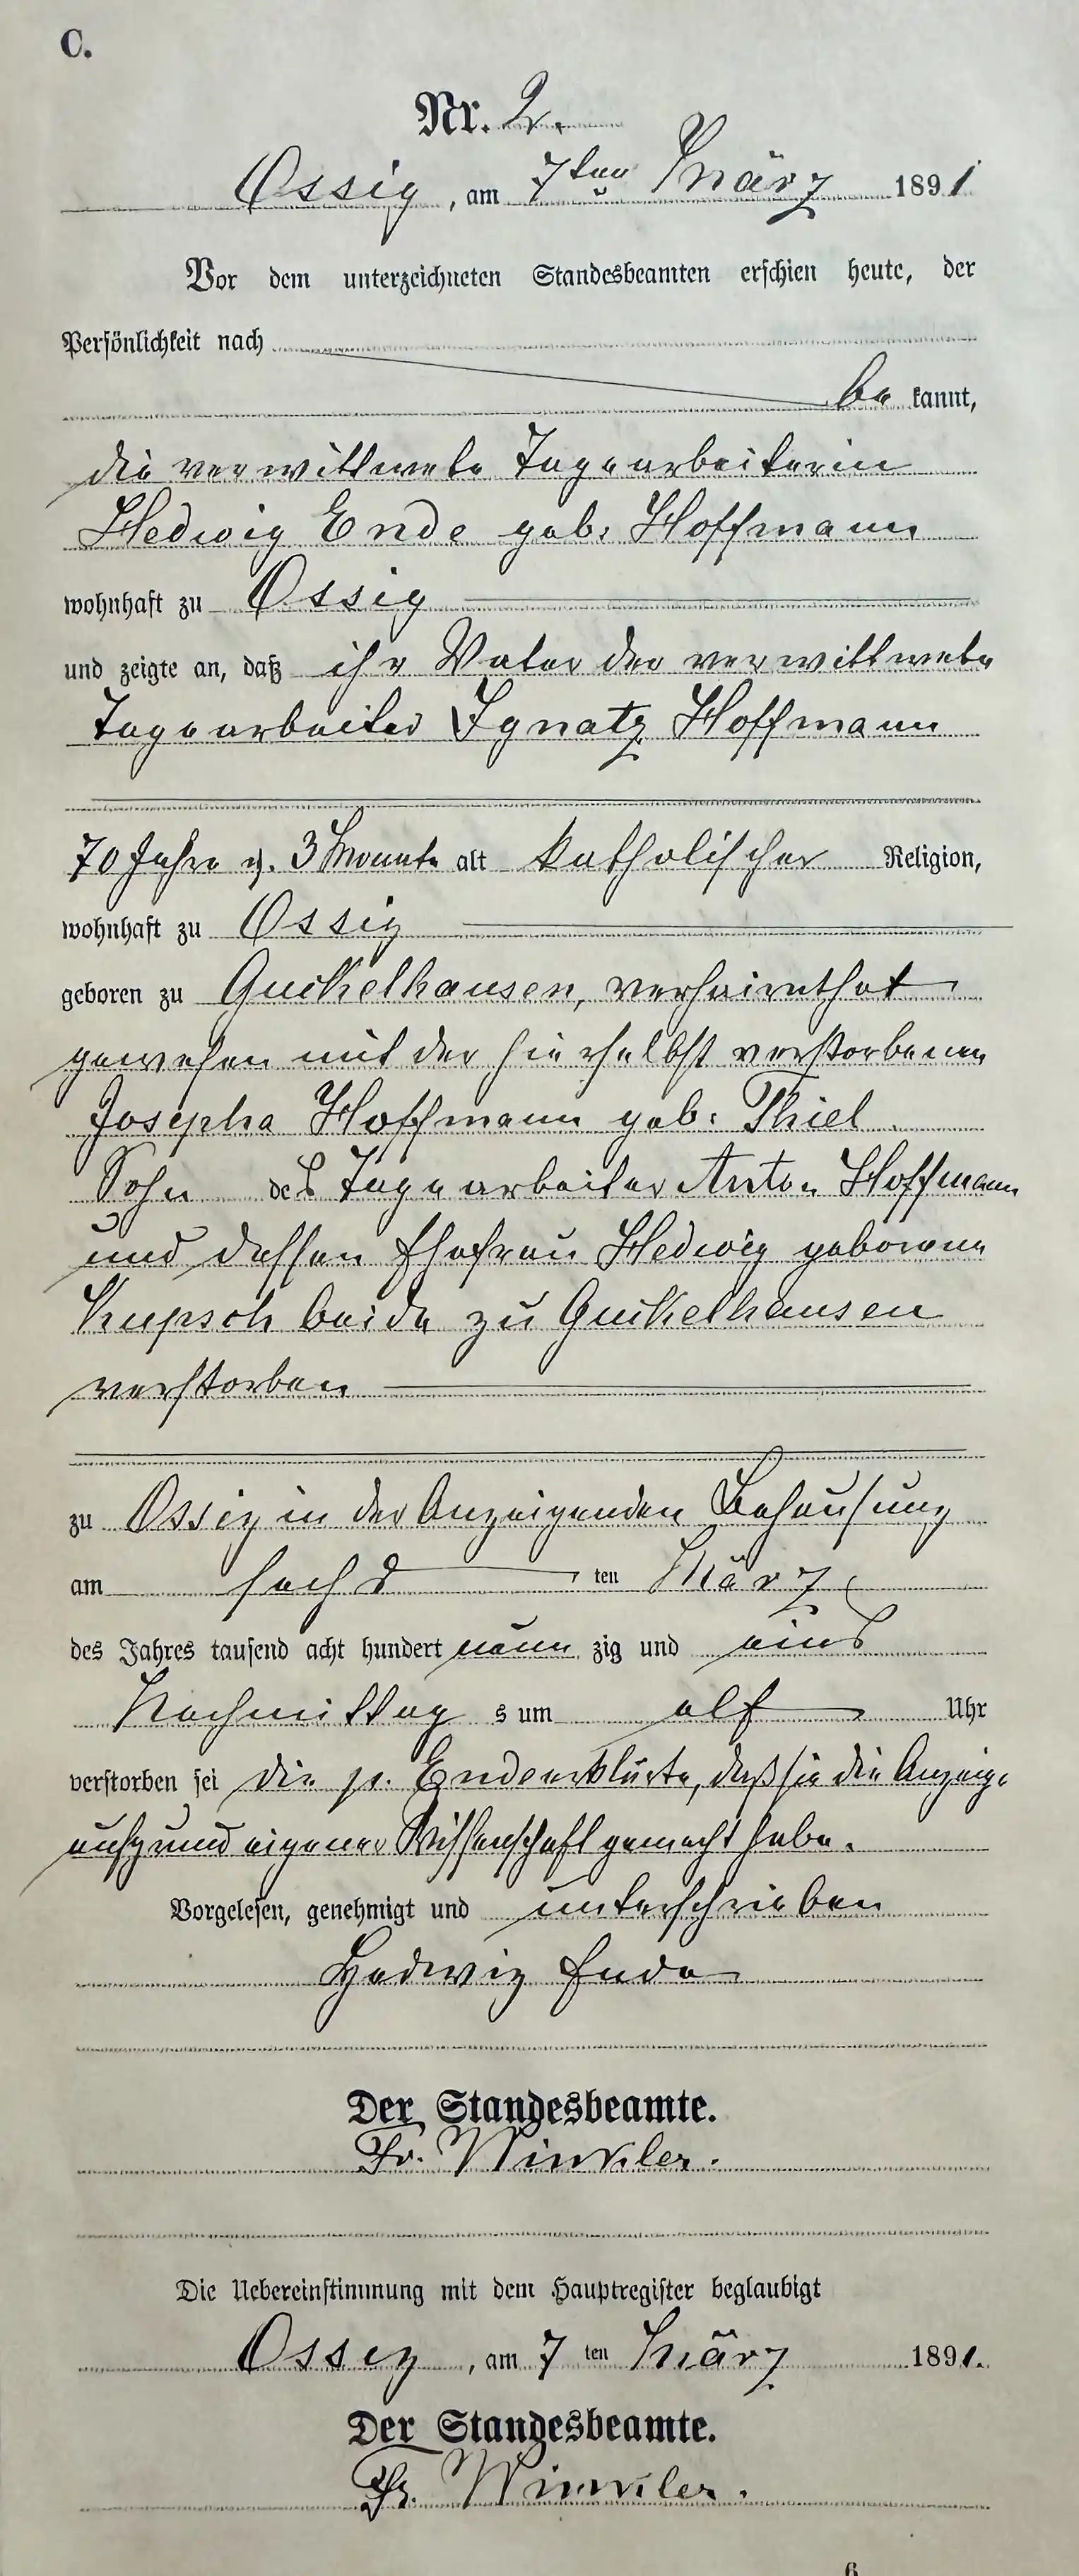 C.
Nr. 2.
Ossig, am 7ten März 1891
Vor dem unterzeichneten Standesbeamten erschien heute, der
Persönlichkeit nach
be kannt,
die verwittwete Tagearbeiterin
Hedwig Ende geb. Hoffmann
wohnhaft zu Ossig
und zeigte an, daß ihr Vater der verwittwete
Tagearbeiter Ignatz Hoffmann
70 Jahre u. 3 Monate alt katholischer Religion,
wohnhaft zu Ossig
geboren zu Guckelhausen, verheirathet
gewesen mit der hierselbst verstorbenen
Josepha Hoffmann geb. Thiel
Sohn des Tagearbeiter Anton Hoffmann
und dessen Ehefrau Hedwig geborene
Kupsch beide zu Guckelhausen
verstorben
zu Ossig in der Anzeigenden Behausung
am sechs ten März
des Jahres tausend acht hundert neun zig und eins
Nachmittag s um elf Uhr
verstorben sei die p. Ende erklärte, daß sie die Anzeige
aufgrund eigener Wissenschaft gemacht habe.
Vorgelesen, genehmigt und unterschrieben
Hedwig Ende
Der Standesbeamte.
Fr. Winkler.
Die Uebereinstimmung mit dem Hauptregister beglaubigt
Ossig, am 7 ten März 1891.
Der Standesbeamte.
Fr. Winkler.
6